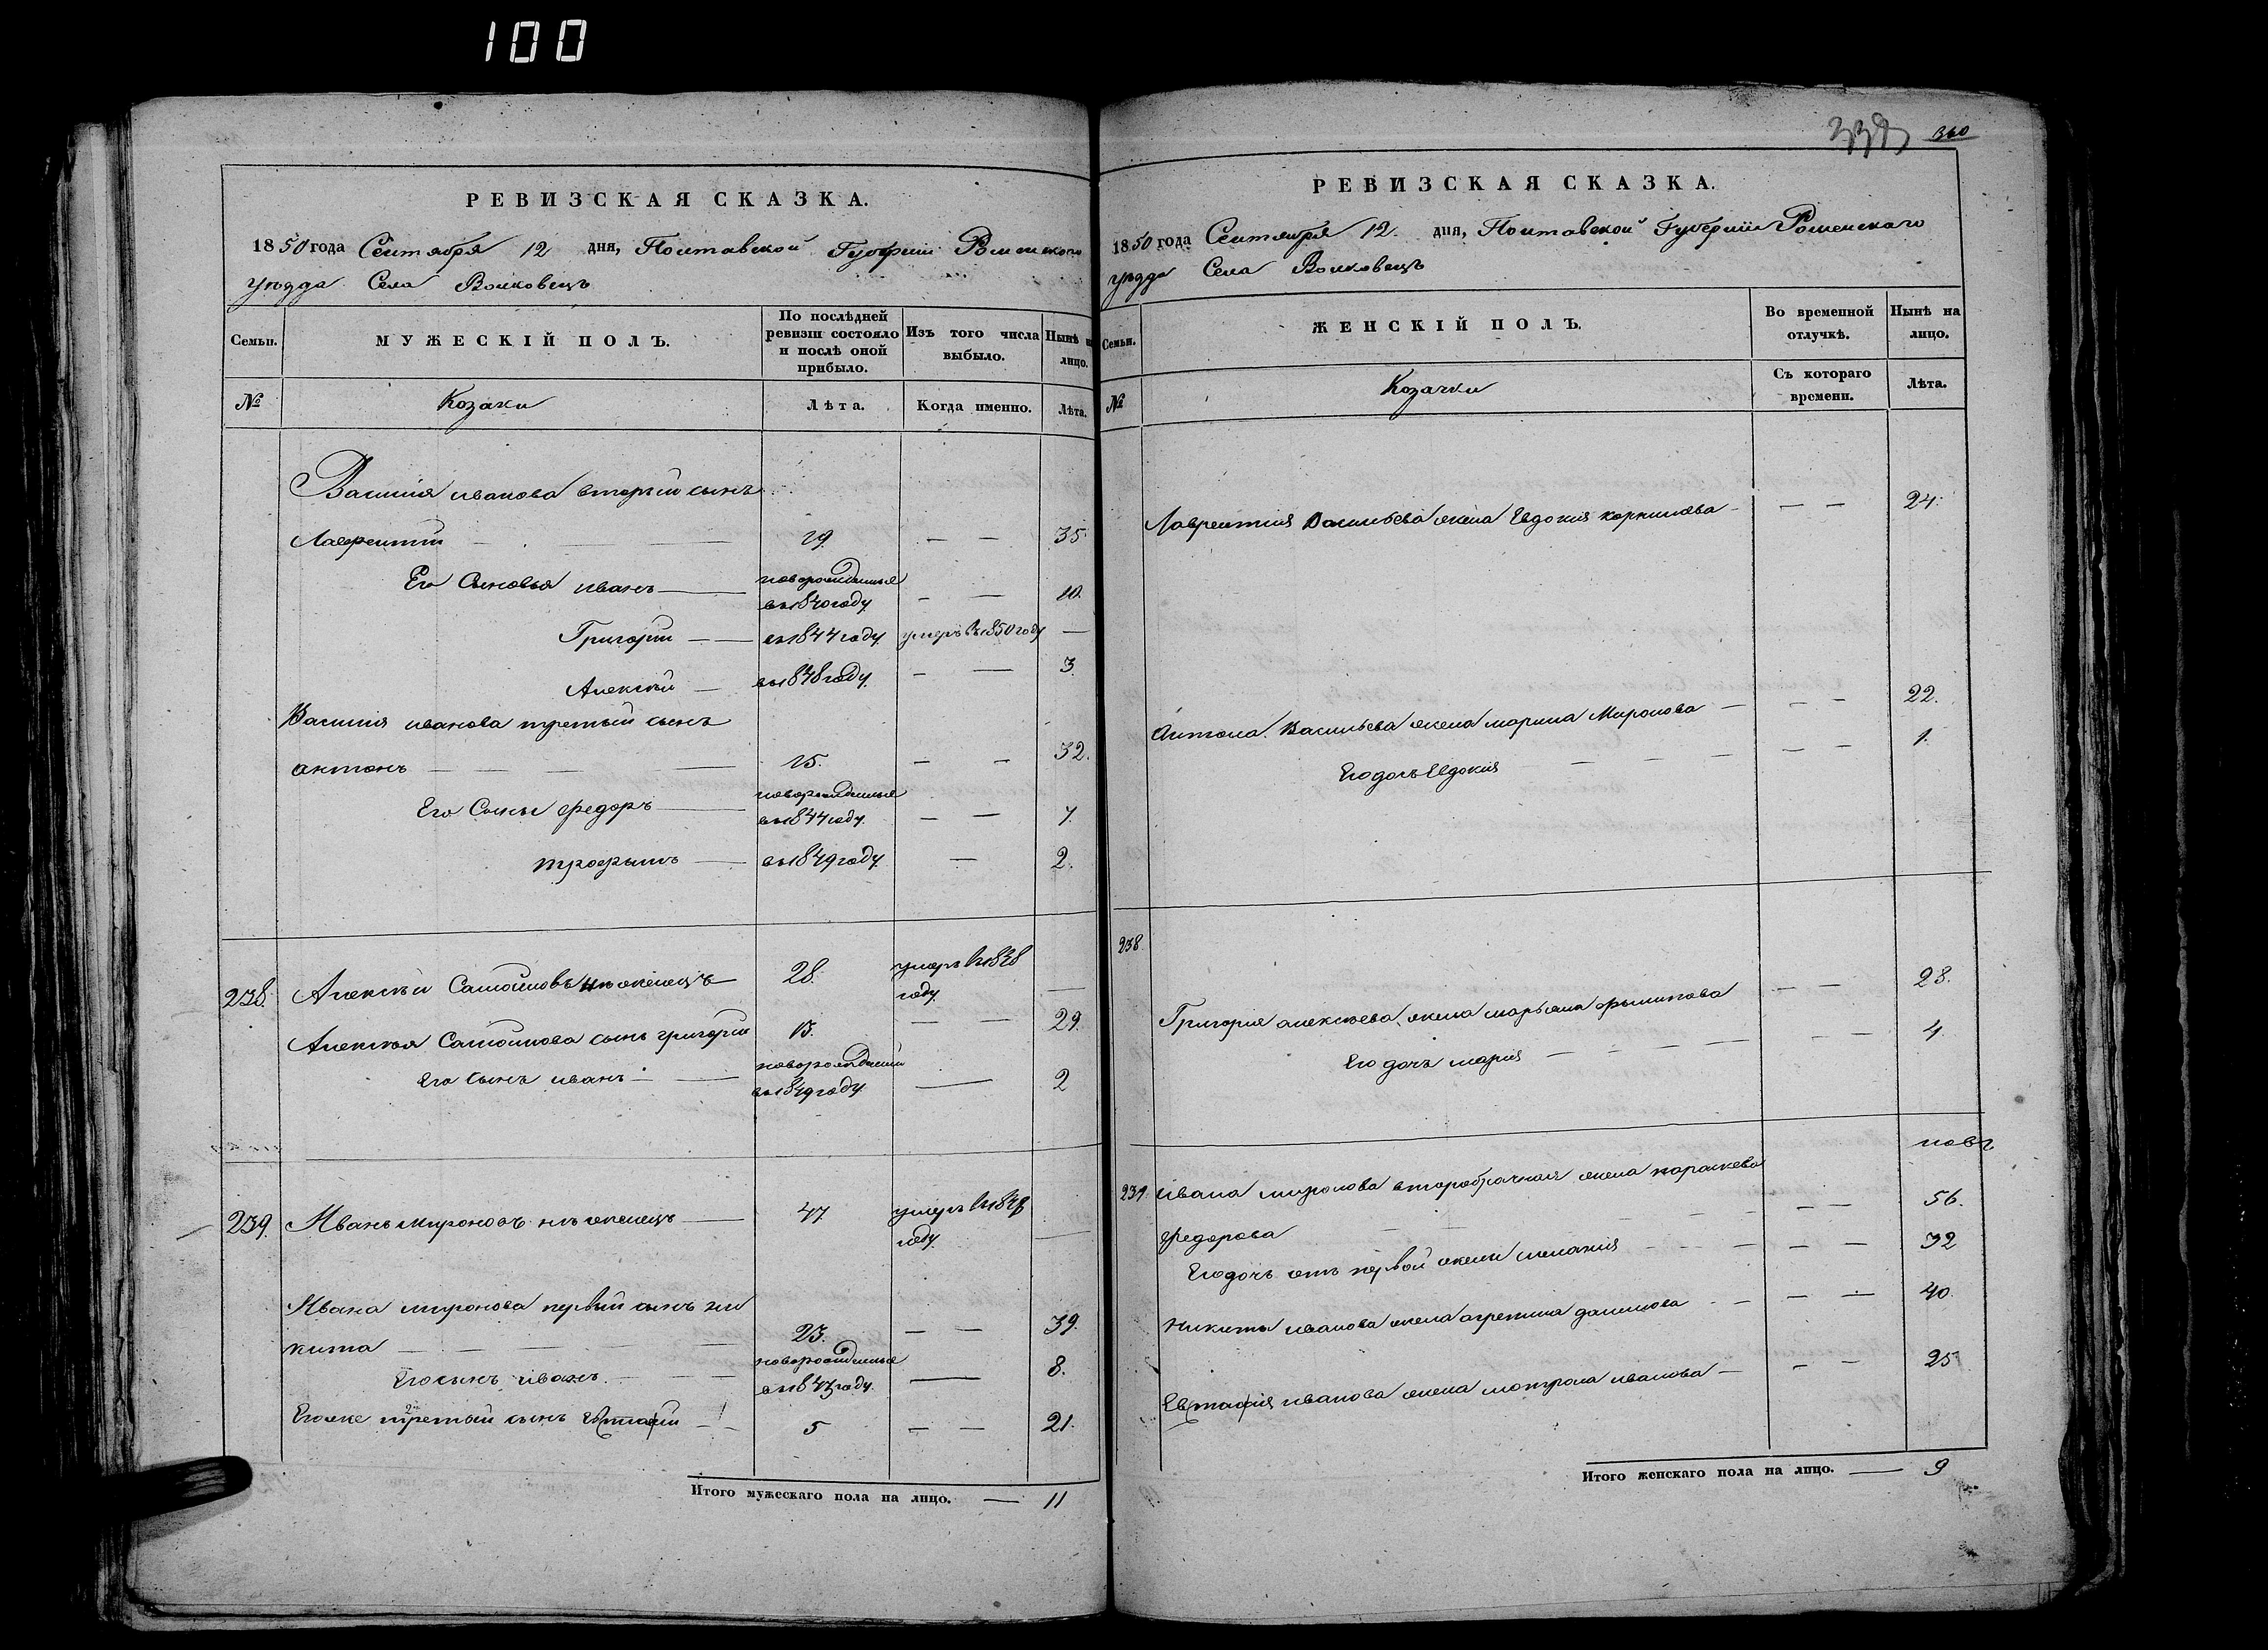 100
РЕВИЗСКАЯ СКАЗКА.
1850 года Сентября 12 дня, Полтавской Губернии Роменского
уѣзда Села Волковецъ
Семьи.
МУЖЕСКІЙ ПОЛЪ.
По послѣдней ревизіи состояло и послѣ оной прибыло.
Изъ того числа выбыло.
Нынѣ на лицо.
№
Козаки
Лѣта.
Когда именно.
Лѣта.
Василія иванова вторый сынъ
Лаврентій — 19. — — 35
Его Сыновья иванъ — новорожденные въ 1840 году — — 10.
Григорій — — въ 1844 году умеръ въ 1850 году —
Алексѣй — въ 1848 году — — 3
Василія иванова третый сынъ
антонъ — — — — 15. — — 32.
Его Сыны федоръ — новорожденные въ 1844 году — — 7.
трофымъ — въ 1849 году — 2.
238. Алексѣй Самойловъ 28. умеръ въ 1838 году —
Алексѣя Самойлова сынъ григорій 13. — — 29.
Его сынъ иванъ — — новорожденный въ 1849 году — 2
239. Иванъ мироновъ — 47 умеръ въ 184 году —
Ивана миронова первый сынъ ни
кита — — — — 23. — — 39.
Его сынъ иванъ. — — новорожденные въ 1843 году — 8.
Егоже 2 третый сынъ Евстафій — — 5 — — 21.
Итого мужескаго пола на лицо. — 11
339 340
РЕВИЗСКАЯ СКАЗКА.
1850 года Сентября 12. дня, Полтавской Губерніи Роменскаго
уѣзда Села Волковецъ
Семьи.
ЖЕНСКІЙ ПОЛЪ.
Во временной отлучкѣ.
Нынѣ на лицо.
№
Козачки
Съ котораго времени.
Лѣта.
Лаврентія Васильева жена Евдокия корнилова — — — 24.
Антона Васильева жена марина Миронова — — — 22.
Его дочь Евдокия — — — — — 1.
238.
Григорія алексѣева жена марьяна филипова — — 28.
Его дочь мария — — — — — — 4.
новъ
239. ивана миронова второбрачная жена параскева
федорова — — — — — 56.
Его дочь отъ первой жены меланія — — — — — 32
никиты иванова жена агрепина данилова — — — — 40.
Евстафія иванова жена мотрона иванова — — — 25
Итого женскаго пола на лицо. — 9